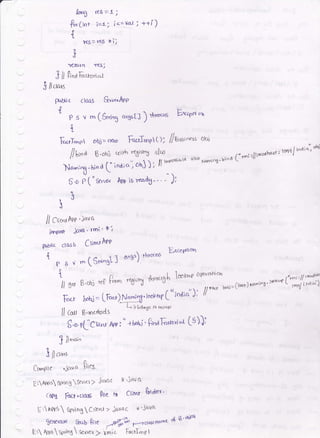 long res=1;
for(int i=1; i<=val; ++i)
{
res=res *i;
}
return res;
} // findFactorial
} // class
public class ServerApp
{
p s v m (String args[]) throws Exception
{
FactImpl obj=new FactImpl(); //Business obj
//bind B-obj with registry also
Naming.bind("india", obj);
S.o.P("Server App is ready....");
}
}
// ClientApp.java
import java.rmi.*;
public class ClientApp
{
p s v m (String[] args) throws Exception
{
// get B-obj ref from registry through lookup operation
Fact bobj=(Fact)Naming.lookup("india");
// call B-methods
S.o.p("Client App:"+bobj.findFactorial(5));
} //main
} //class
Compile java files
E:\Apps\spring\server> javac *.java
copy Fact.class file to Client folder.
E:\Apps\spring\Client> javac *.java
generate stub file
E:\Apps\spring\server> rmic FactImpl